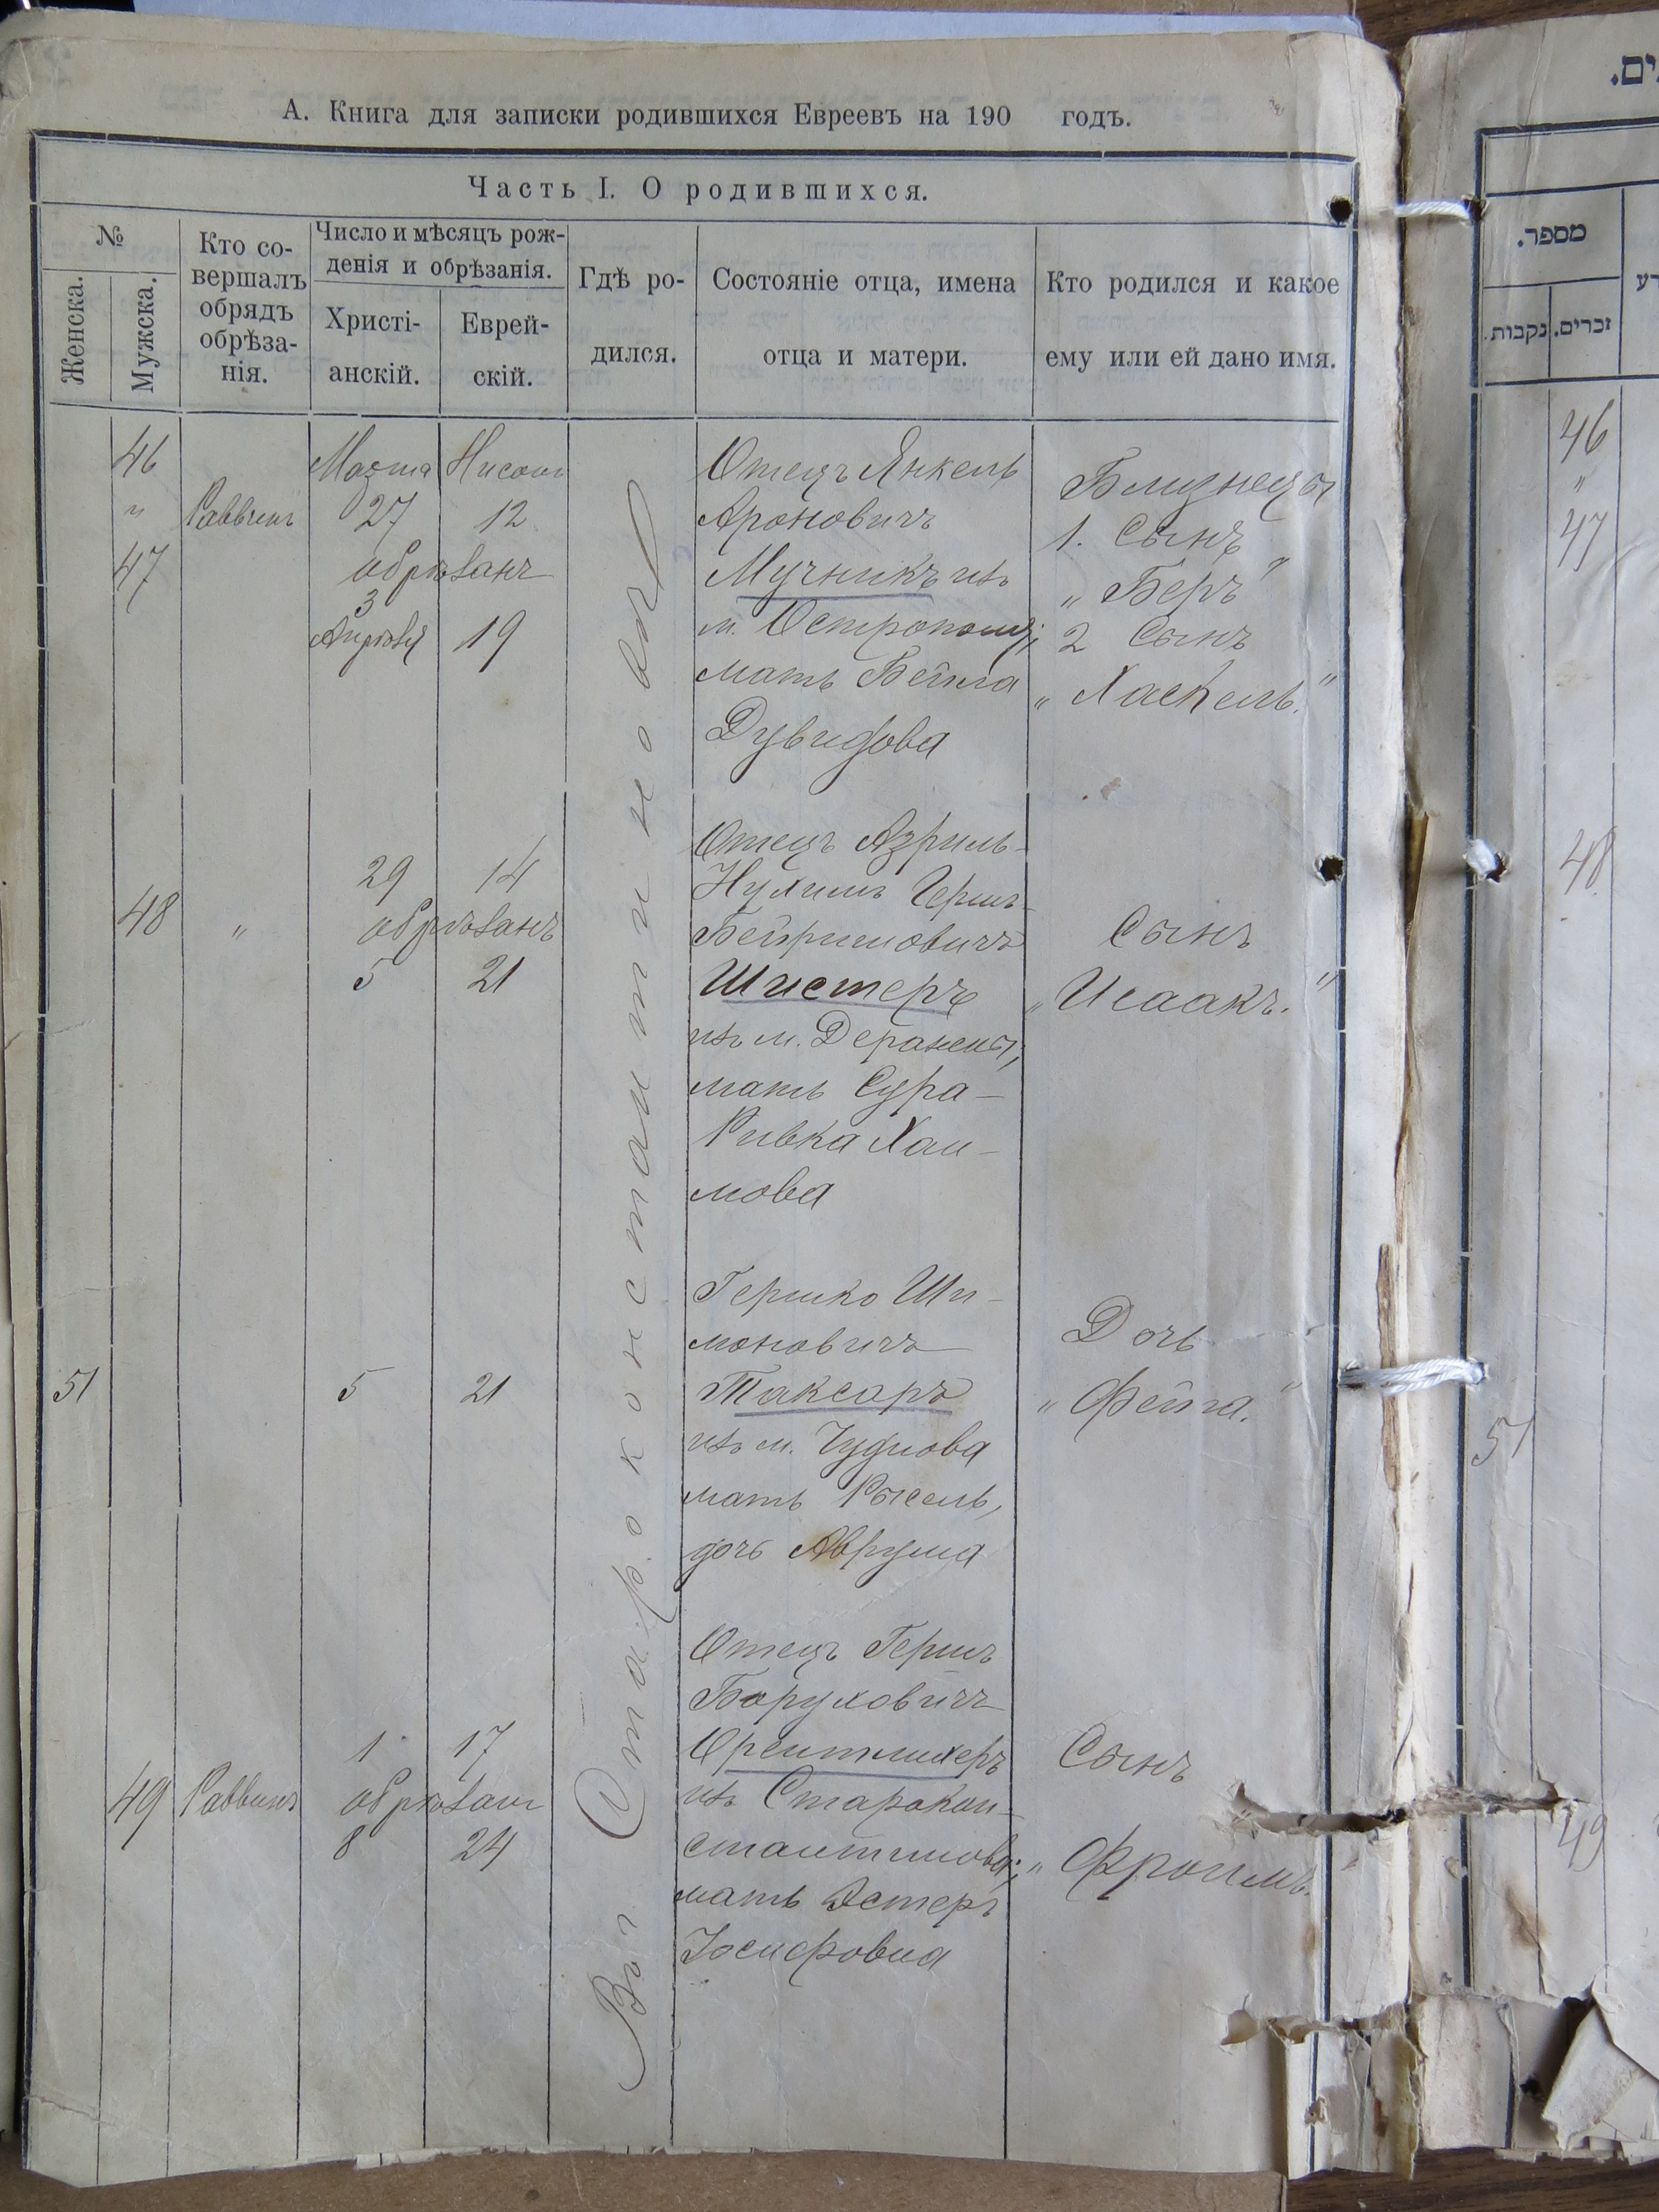 А. Книга для записки родившихся Евреевъ на 190 годъ.
Часть I. О родившихся.
№
Женска.
Мужска.
Кто со-
вершалъ
обрядъ
обрѣза-
нія.
Число и мѣсяцъ рож-
денія и обрѣзанія.
Христі-
анскій.
Еврей-
скій.
Гдѣ ро-
дился.
Состояніе отца, имена
отца и матери.
Кто родился и какое
ему или ей дано имя.
Въ г. Староконстантиновѣ
46
"
47
Раввинъ
Марта
27
Нисонъ
12
обрѣзанъ
3
Апрѣля
19
Отецъ Янкель
Ароновичъ
Мучникъ изъ
м. Острополя;
мать Бейла
Дувидова
Близнецы
1. Сынъ
„Беръ"
2 Сынъ
„Хаскель."
48
"
29
14
обрѣзанъ
5
21
Отецъ Азриль-
Нухимъ Герш-
Бейришовичъ
Шистеръ
изъ м. Деражни,
мать Сура-
Ривка Хаи-
мова
Сынъ
„Исаакъ."
51
5
21
Гершко Ши-
моновичъ
Таксаръ
изъ м. Чуднова
мать Рысель,
дочь Аврума
Дочь
„Фейга."
49
Раввинъ
1
17
обрѣзанъ
8
24
Отецъ Гершъ
Боруховичъ
Орентлихеръ
изъ Старокон-
стантинова;
мать Эстеръ
Іосифовна
Сынъ
„Фроимъ.
ים.
מספר.
נקבות.
זכרים.
46
"
47
48
51
49